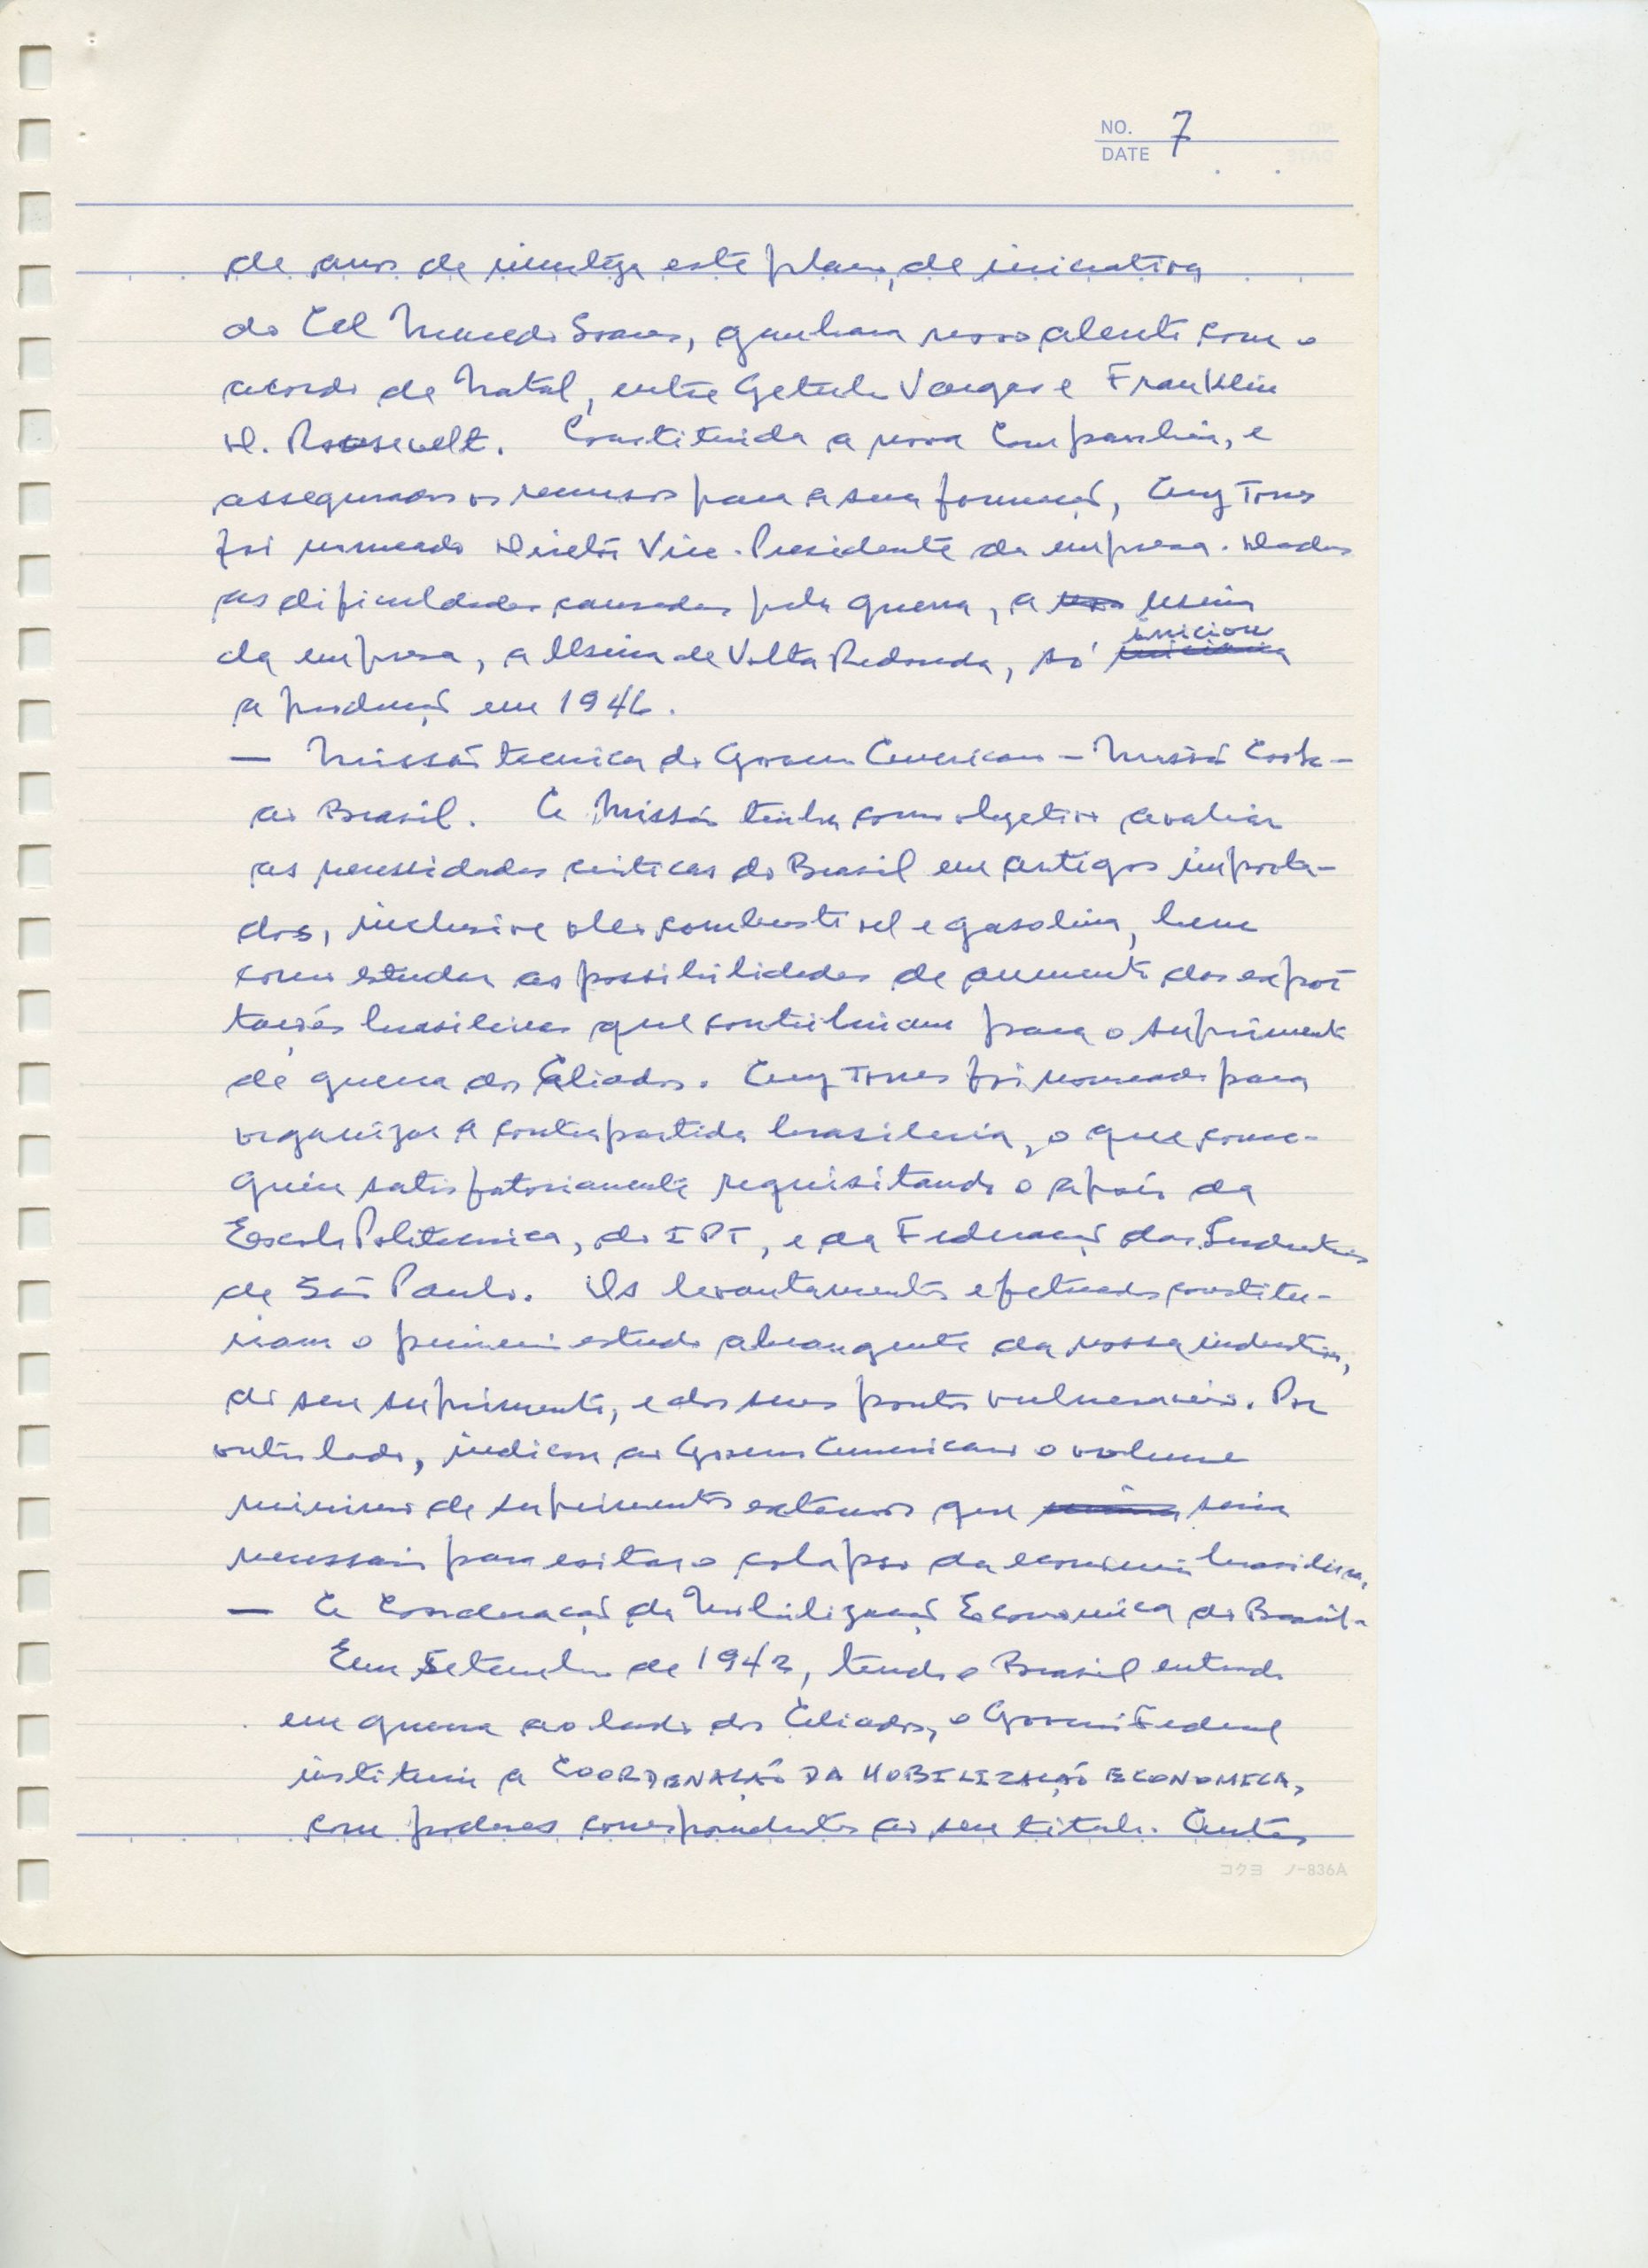 NO. 7
DATE
de anos de incerteza este plano, de iniciativa
do Cel Macedo Soares, ganhara novo alento com o
acordo de Natal, entre Getulio Vargas e Franklin
D. Roosevelt. Constituida a nova Companhia, e
assegurados os recursos para a sua formação, Ary Torres
foi nomeado Diretor Vice-Presidente da empresa. Dadas
as dificuldades causadas pela guerra, a usina
da empresa, a Usina de Volta Redonda, só iniciou
a produção em 1946.
— Missão tecnica do Governo Americano - Missão Cooke -
ao Brasil. A Missão tinha como objetivo avaliar
as necessidades criticas do Brasil em artigos importa-
dos, inclusive oleo combustivel e gasolina, bem
como estudar as possibilidades de aumento das expor
tações brasileiras que contribuiam para o suprimento
de guerra dos Aliados. Ary Torres foi nomeado para
organizar a contrapartida brasileira, o que conse-
guiu satisfatoriamente requisitando o apoio da
Escola Politecnica, do IPT, e da Federação das Industrias
de São Paulo. Os levantamentos efetuados constitu-
iram o primeiro estudo abrangente da nossa industria,
do seu suprimento, e dos seus pontos vulneraveis. Por
outro lado, indicou ao Governo Americano o volume
minimo de suprimentos externos que seria
necessario para evitar o colapso da economia brasileira.
— A Coordenação da Mobilização Economica do Brasil-
Em Setembro de 1942, tendo o Brasil entrado
em guerra ao lado dos Aliados, o Governo Federal
instituiu a COORDENAÇÃO DA MOBILIZAÇÃO ECONOMICA,
com poderes correspondentes ao seu titulo. Antes
コクヨ ノ-836A